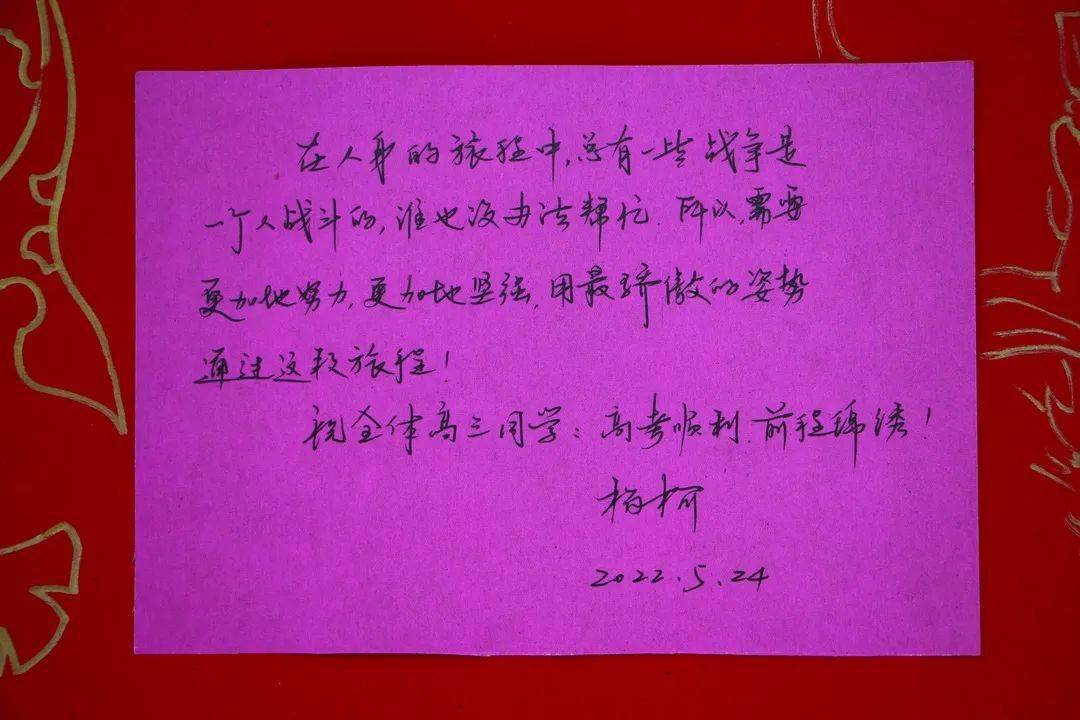 在人身的旅程中,总有一些战争是
一个人战斗的,谁也没办法帮忙.所以,需要
更加地努力,更加地坚强,用最骄傲的姿势
通过这段旅程!
祝全体高三同学:高考顺利.前程锦绣!
柯
2022.5.24